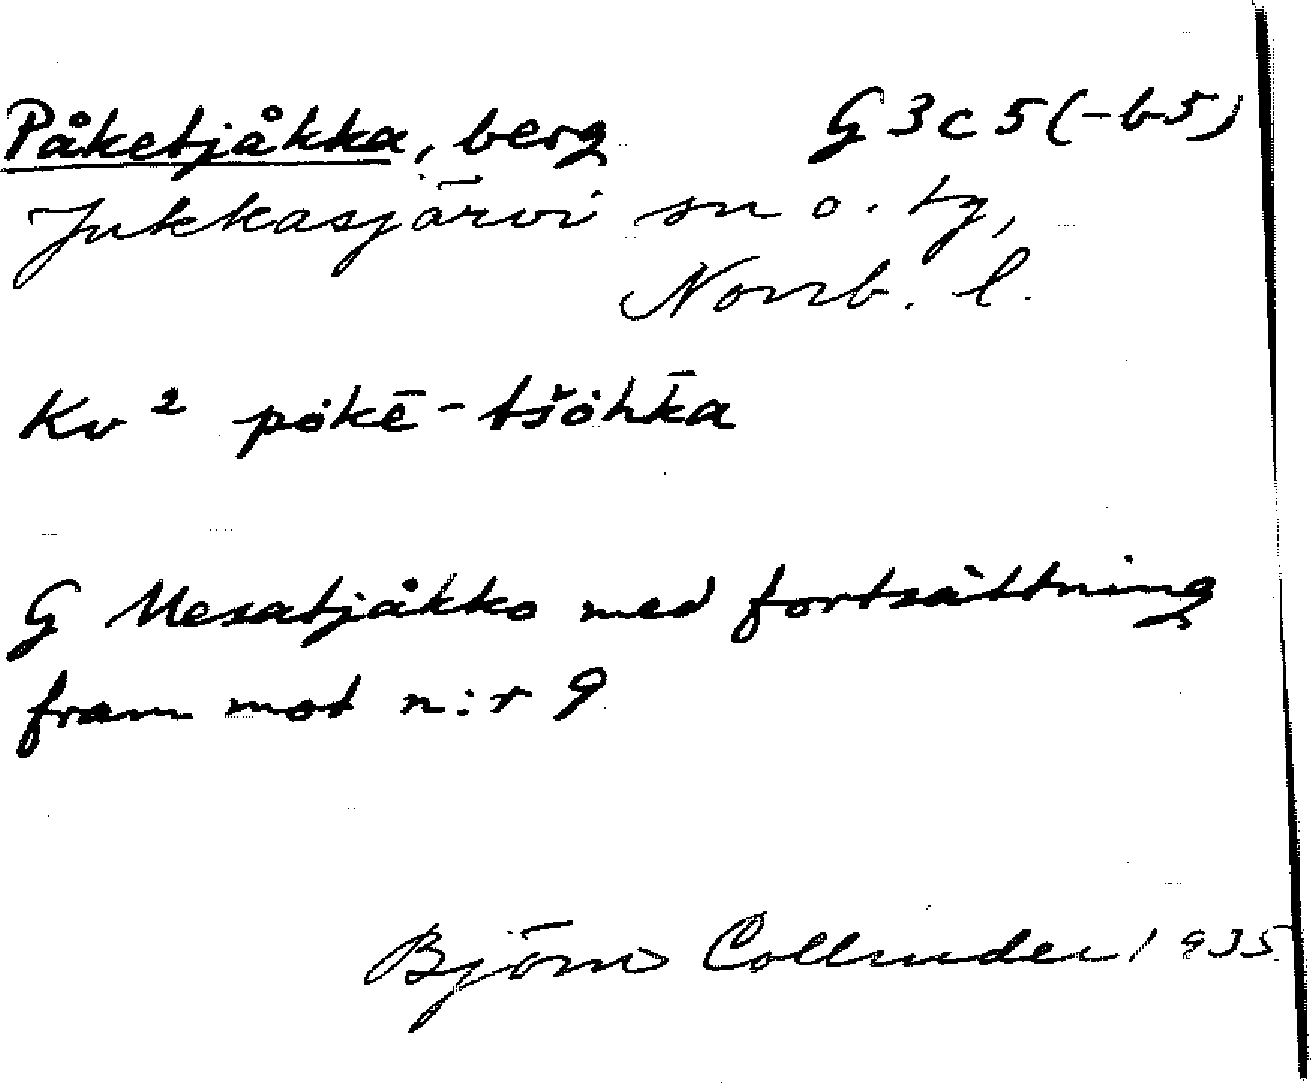 Påketjåkka, berg G3c5(-b5)
Jukkasjärvi sn o. tg,
Norrb. l.
Kv² pȯkē-tšȯhk̄a
G Mesatjåkko med fortsättning
fram mot n:r 9
Björn Collinder 1935